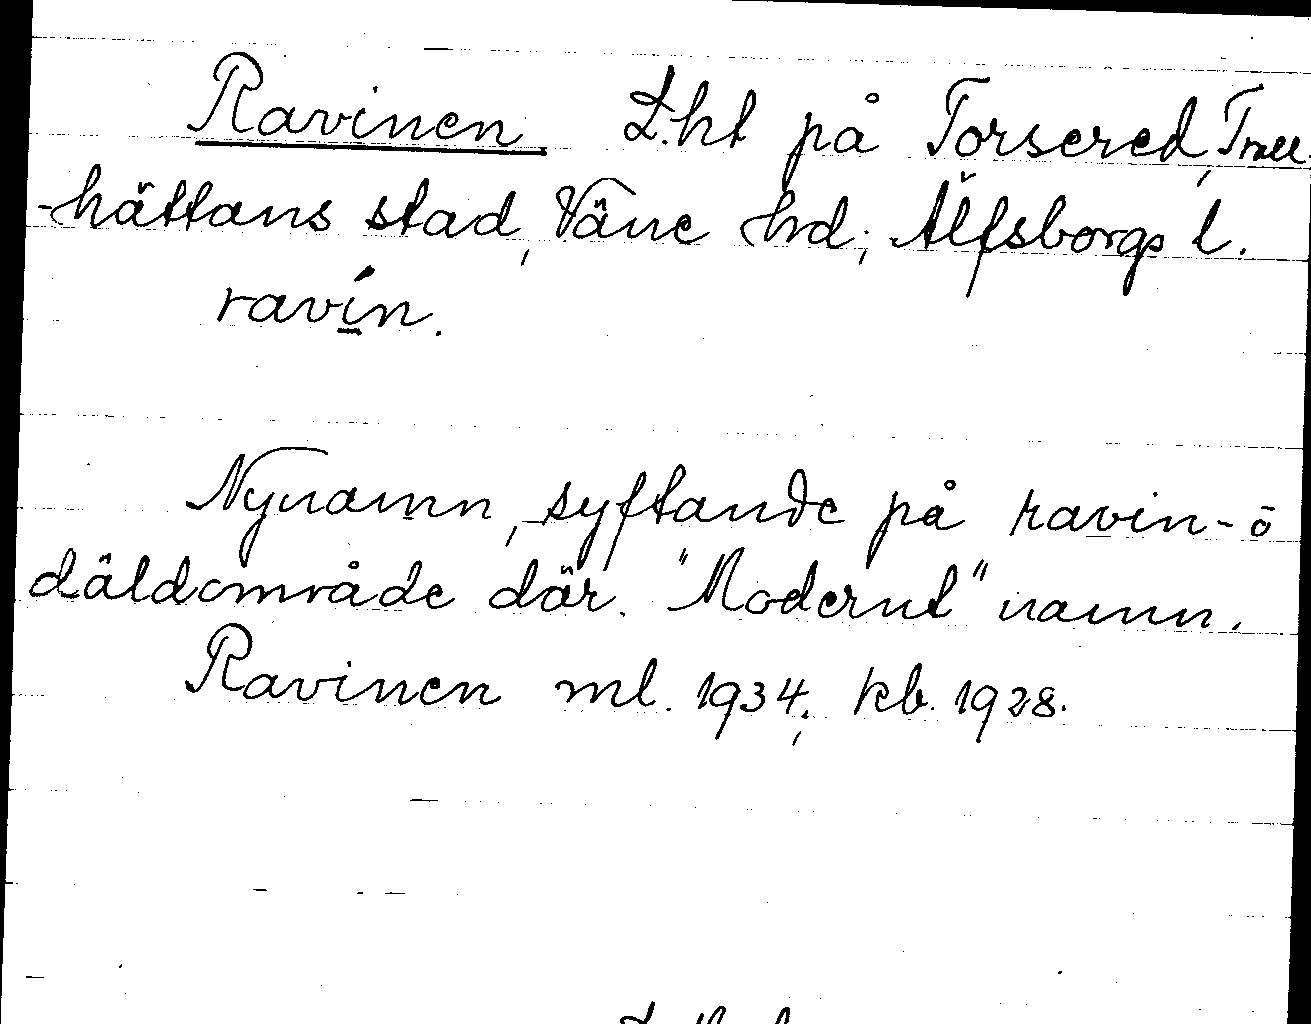 Ravinen L.ht på Torsered, Troll-
-hättans stad, Väne hd; Älfsborgs l.
ravín.
Nynamn, syftande på ravin- o
däldområde där. "Modernt" namn.
Ravinen ml. 1934; kb. 1928.